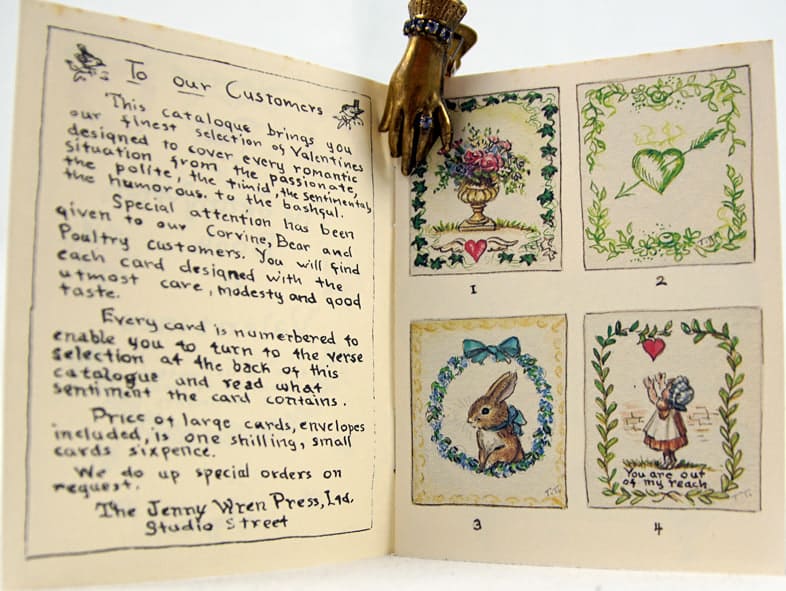 To our Customers
This catalogue brings you
our finest selection of Valentines
designed to cover every romantic
situation from the passionate,
the polite, the timid, the sentimental,
the humorous. to the bashful.
Special attention has been
given to our Corvine, Bear and
Poultry customers. You will find
each card designed with the
utmost care, modesty and good
taste.
Every card is numerbered to
enable you to turn to the verse
selection at the back of this
catalogue and read what
sentiment the card contains.
Price of large cards, envelopes
included, is one shilling, small
cards sixpence.
We do up special orders on
request.
The Jenny Wren Press, Ltd.
Studio Street
1
2
3
You are out
of my reach
4